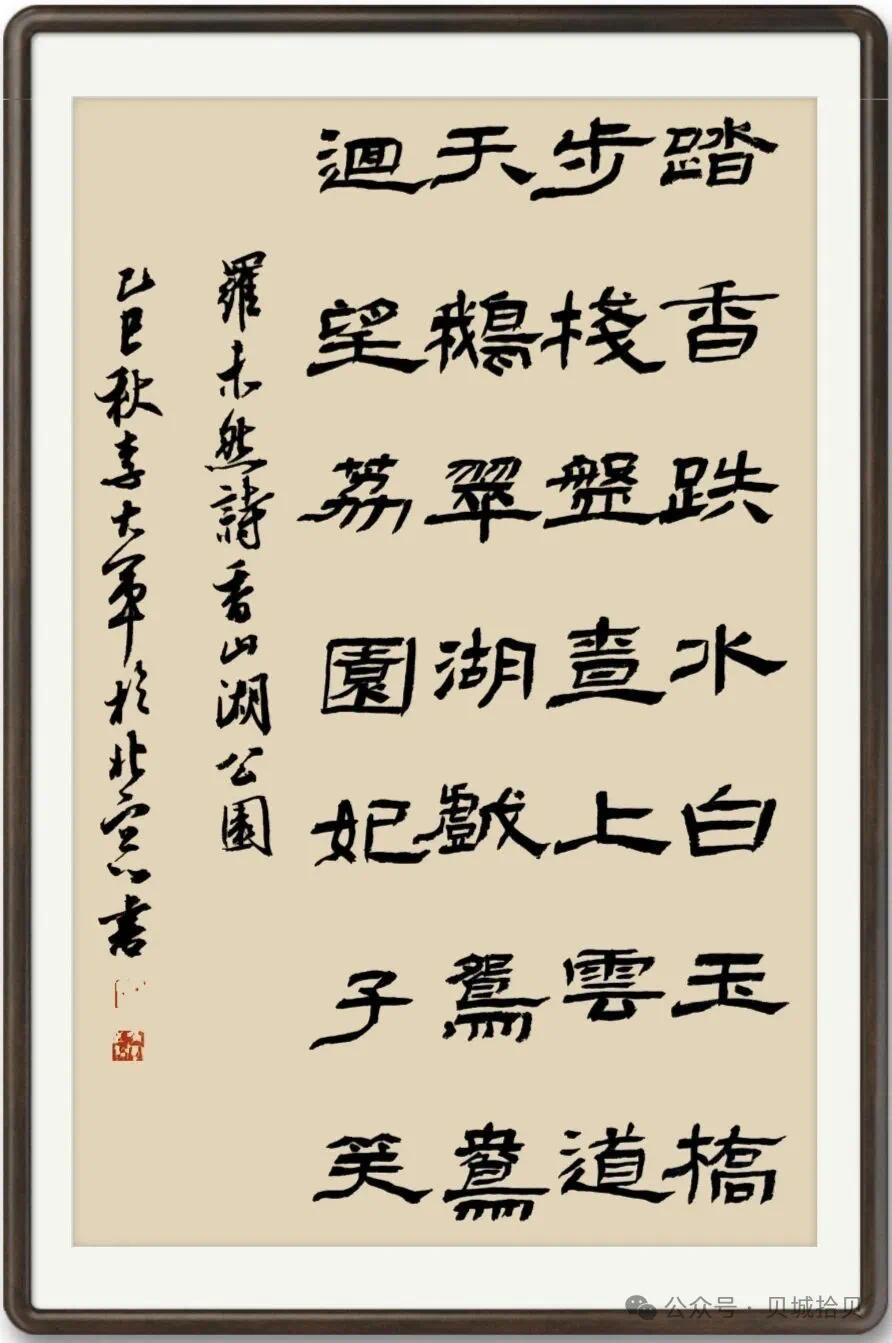 踏香跌水白玉橋
步棧盤上雲道
天鵝翠湖戲鴛鴦
迴望荔園妃子笑
羅未然詩香山湖公園
乙巳秋李大軍於北書
公众号 · 贝城拾贝